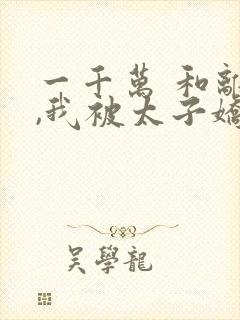 一千萬 和離
,我被太子嬌
吳學龍